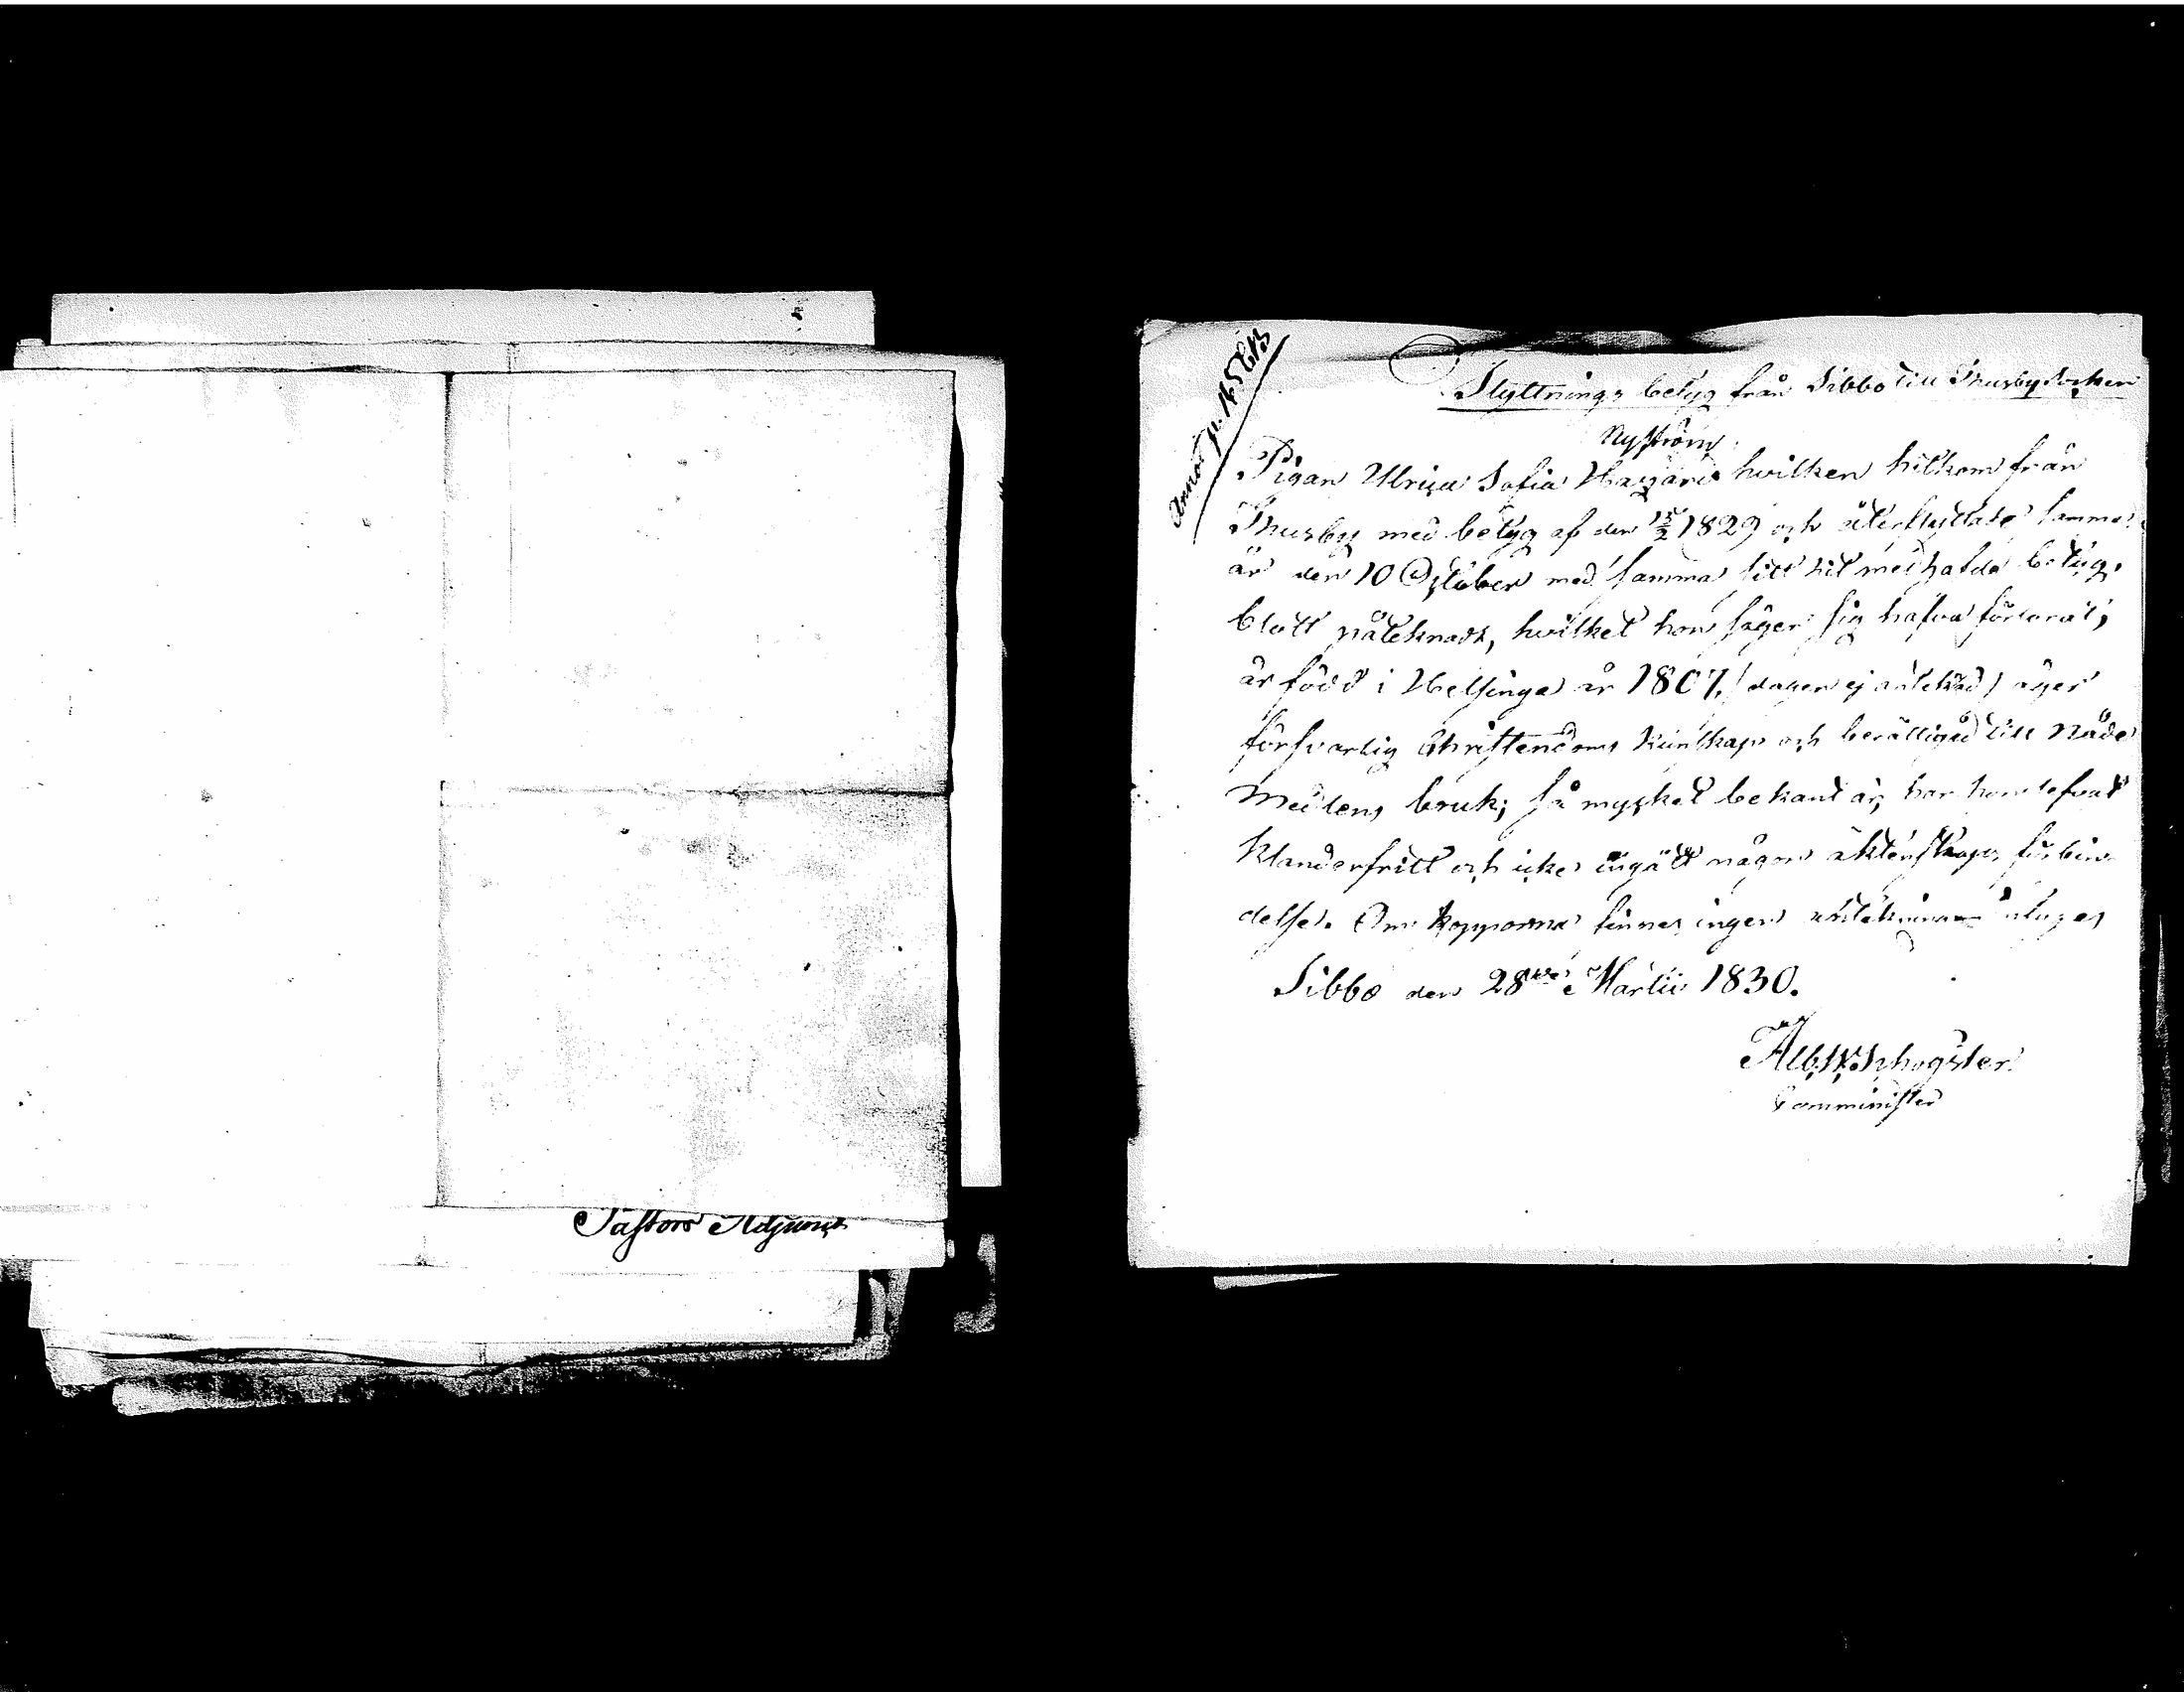 Pastors Adjunct
Annot. p. 145
Flyttnings betyg från Sibbo till Thusby Socken
Nyström
Pigan Ulrica Sofia hvilken hitkom från
Thusby med betyg af den 15/2 1829 och återflyttade samma
år den 10 October med samma sitt hit medhafda betyg,
blott påteknadt, hvilket hon säger sig hafva förlorat;
är född i Helsinge år 1807, (dagen ej anteknad) äger
försvarlig Christendoms kunskap och berättigad till Nåde
Medlens bruk; så mycket bekant är, har hon lefvat
klanderfritt och icke ingått någon äktenskaps förbin-
delse. Om kopporna finnes ingen
Sibbo den 28de Martii 1830.
Comminister